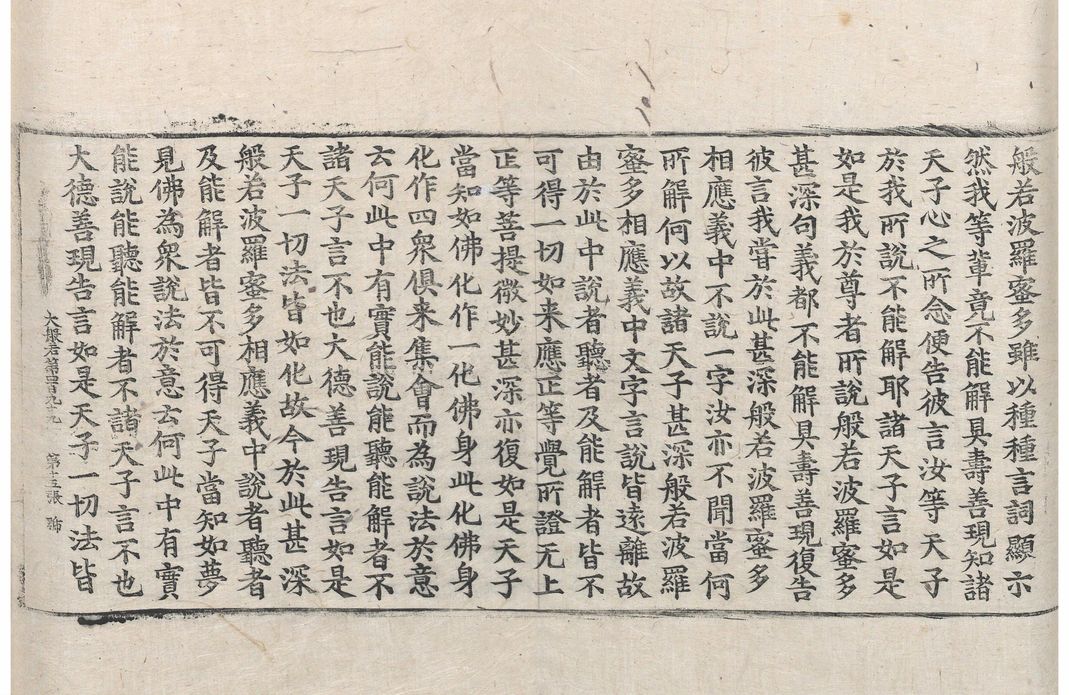 般若波羅蜜多雖以種種言詞顯示
然我等輩竟不能解具壽善現知諸
天子心之所念便告彼言汝等天子
於我所說不能解耶諸天子言如是
如是我於尊者所說般若波羅蜜多
甚深句義都不能解具壽善現復告
彼言我甞於此甚深般若波羅蜜多
相應義中不說一字汝亦不聞當何
所解何以故諸天子甚深般若波羅
蜜多相應義中文字言說皆遠離故
由於此中說者聽者及能解者皆不
可得一切如来應正等覺所證无上
正等菩提微妙甚深亦復如是天子
當知如佛化作一化佛身此化佛身
化作四衆俱来集會而為說法於意
云何此中有實能說能聽能解者不
諸天子言不也大德善現告言如是
天子一切法皆如化故今於此甚深
般若波羅蜜多相應義中說者聽者
及能解者皆不可得天子當知如夢
見佛為衆說法於意云何此中有實
能說能聽能解者不諸天子言不也
大德善現告言如是天子一切法皆
大般若第四百九十九 第十五張 號